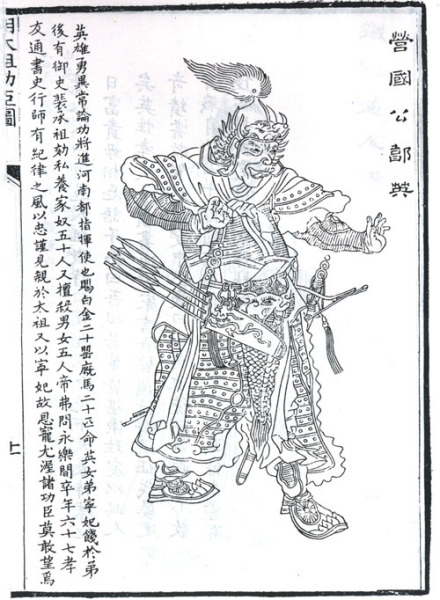 營國公郭英
英雄勇異常論功將進河南都指揮使也賜白金二十罌廐馬二十匹命英女弟寧妃餞於弟
後有御史裴承祖劾私養家奴五十人又擅殺男女五人帝弗問永樂間卒年六十七孝
友通書史行師有紀律之風以忠謹見親於太祖又以寧妃故恩寵尤渥諸功臣莫敢望焉
明太祖功臣圖
十一